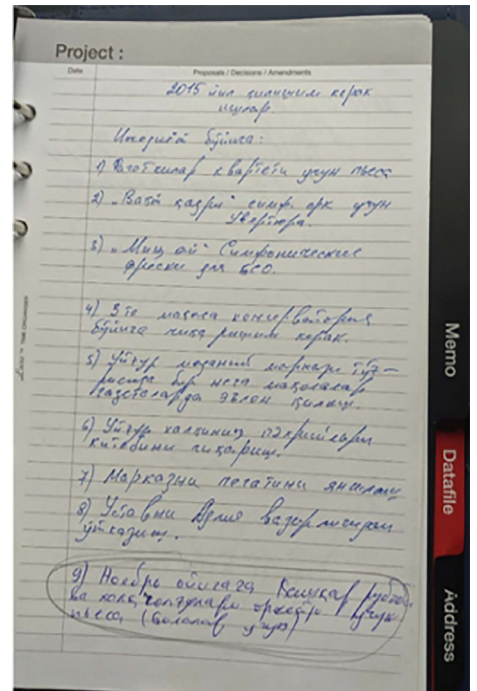 Project :
Date
Proposals / Decisions / Amendments
2015 йил қилишим керак
ишлар.
Ижодий бўйича:
1) Фаготчилар квартети учун пьеса
2) „Вақт қадри“ симф. орк учун
Увертюра.
3) „Минг ой“ Симфонические
фрески для БСО.
4) 3 та мақола консерватория
бўйича чиқаришим керак.
5) Уйғур маданий маркази тўғ-
рисида бир неча мақолалар
газеталарда эълон қилиш.
6) Уйғур халқининг
китобини чиқариш.
7) Марказни печатини янгилаш
8) Уставни Адлия вазирлигидан
ўтказиш.
9) Ноябрь ойигача Қашқар рубоби
ва халқ чолғулари оркестри учун
пьеса (болалар учун)
Memo
Datafile
Address